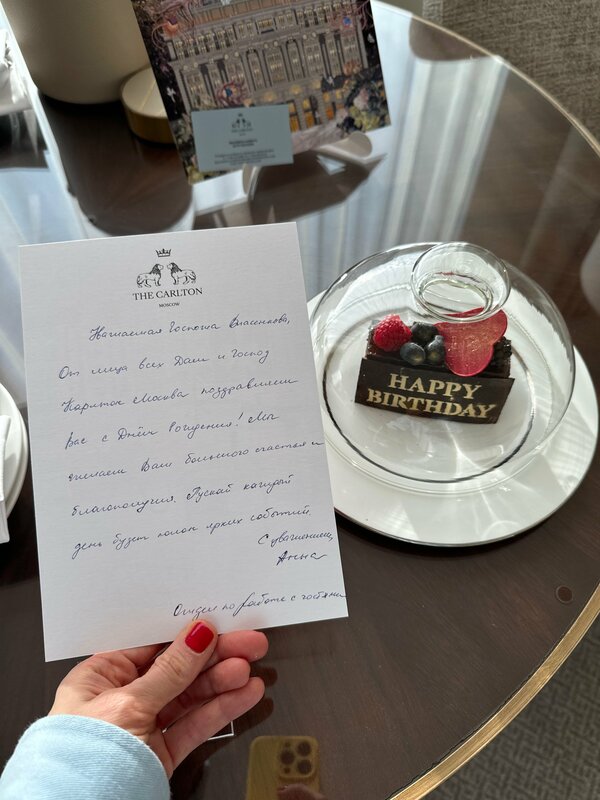 THE CARLTON
THE CARLTON
MOSCOW
Уважаемая Госпожа Власенкова,
От лица всех Дам и Господ
Карлтон Москва поздравляем
Вас с Днём Рождения! Мы
желаем Вам большого счастья и
благополучия. Пускай каждый
день будет полон ярких событий.
С уважением,
Анна
Отдел по работе с гостями
HAPPY
BIRTHDAY